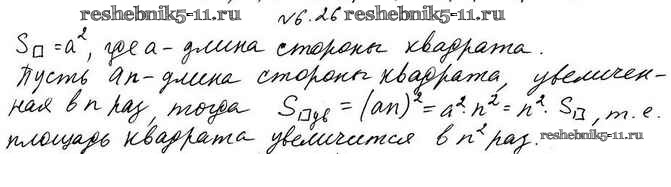 www.reshebnik5-11.ru
№6.26
www.reshebnik5-11.ru
S□ = a², где a - длина стороны квадрата.
Пусть an - длина стороны квадрата, увеличен-
ная в n раз, тогда S□ув = (an)² = a²·n² = n²·S□, т.е.
площадь квадрата увеличится в n² раз.
www.reshebnik5-11.ru